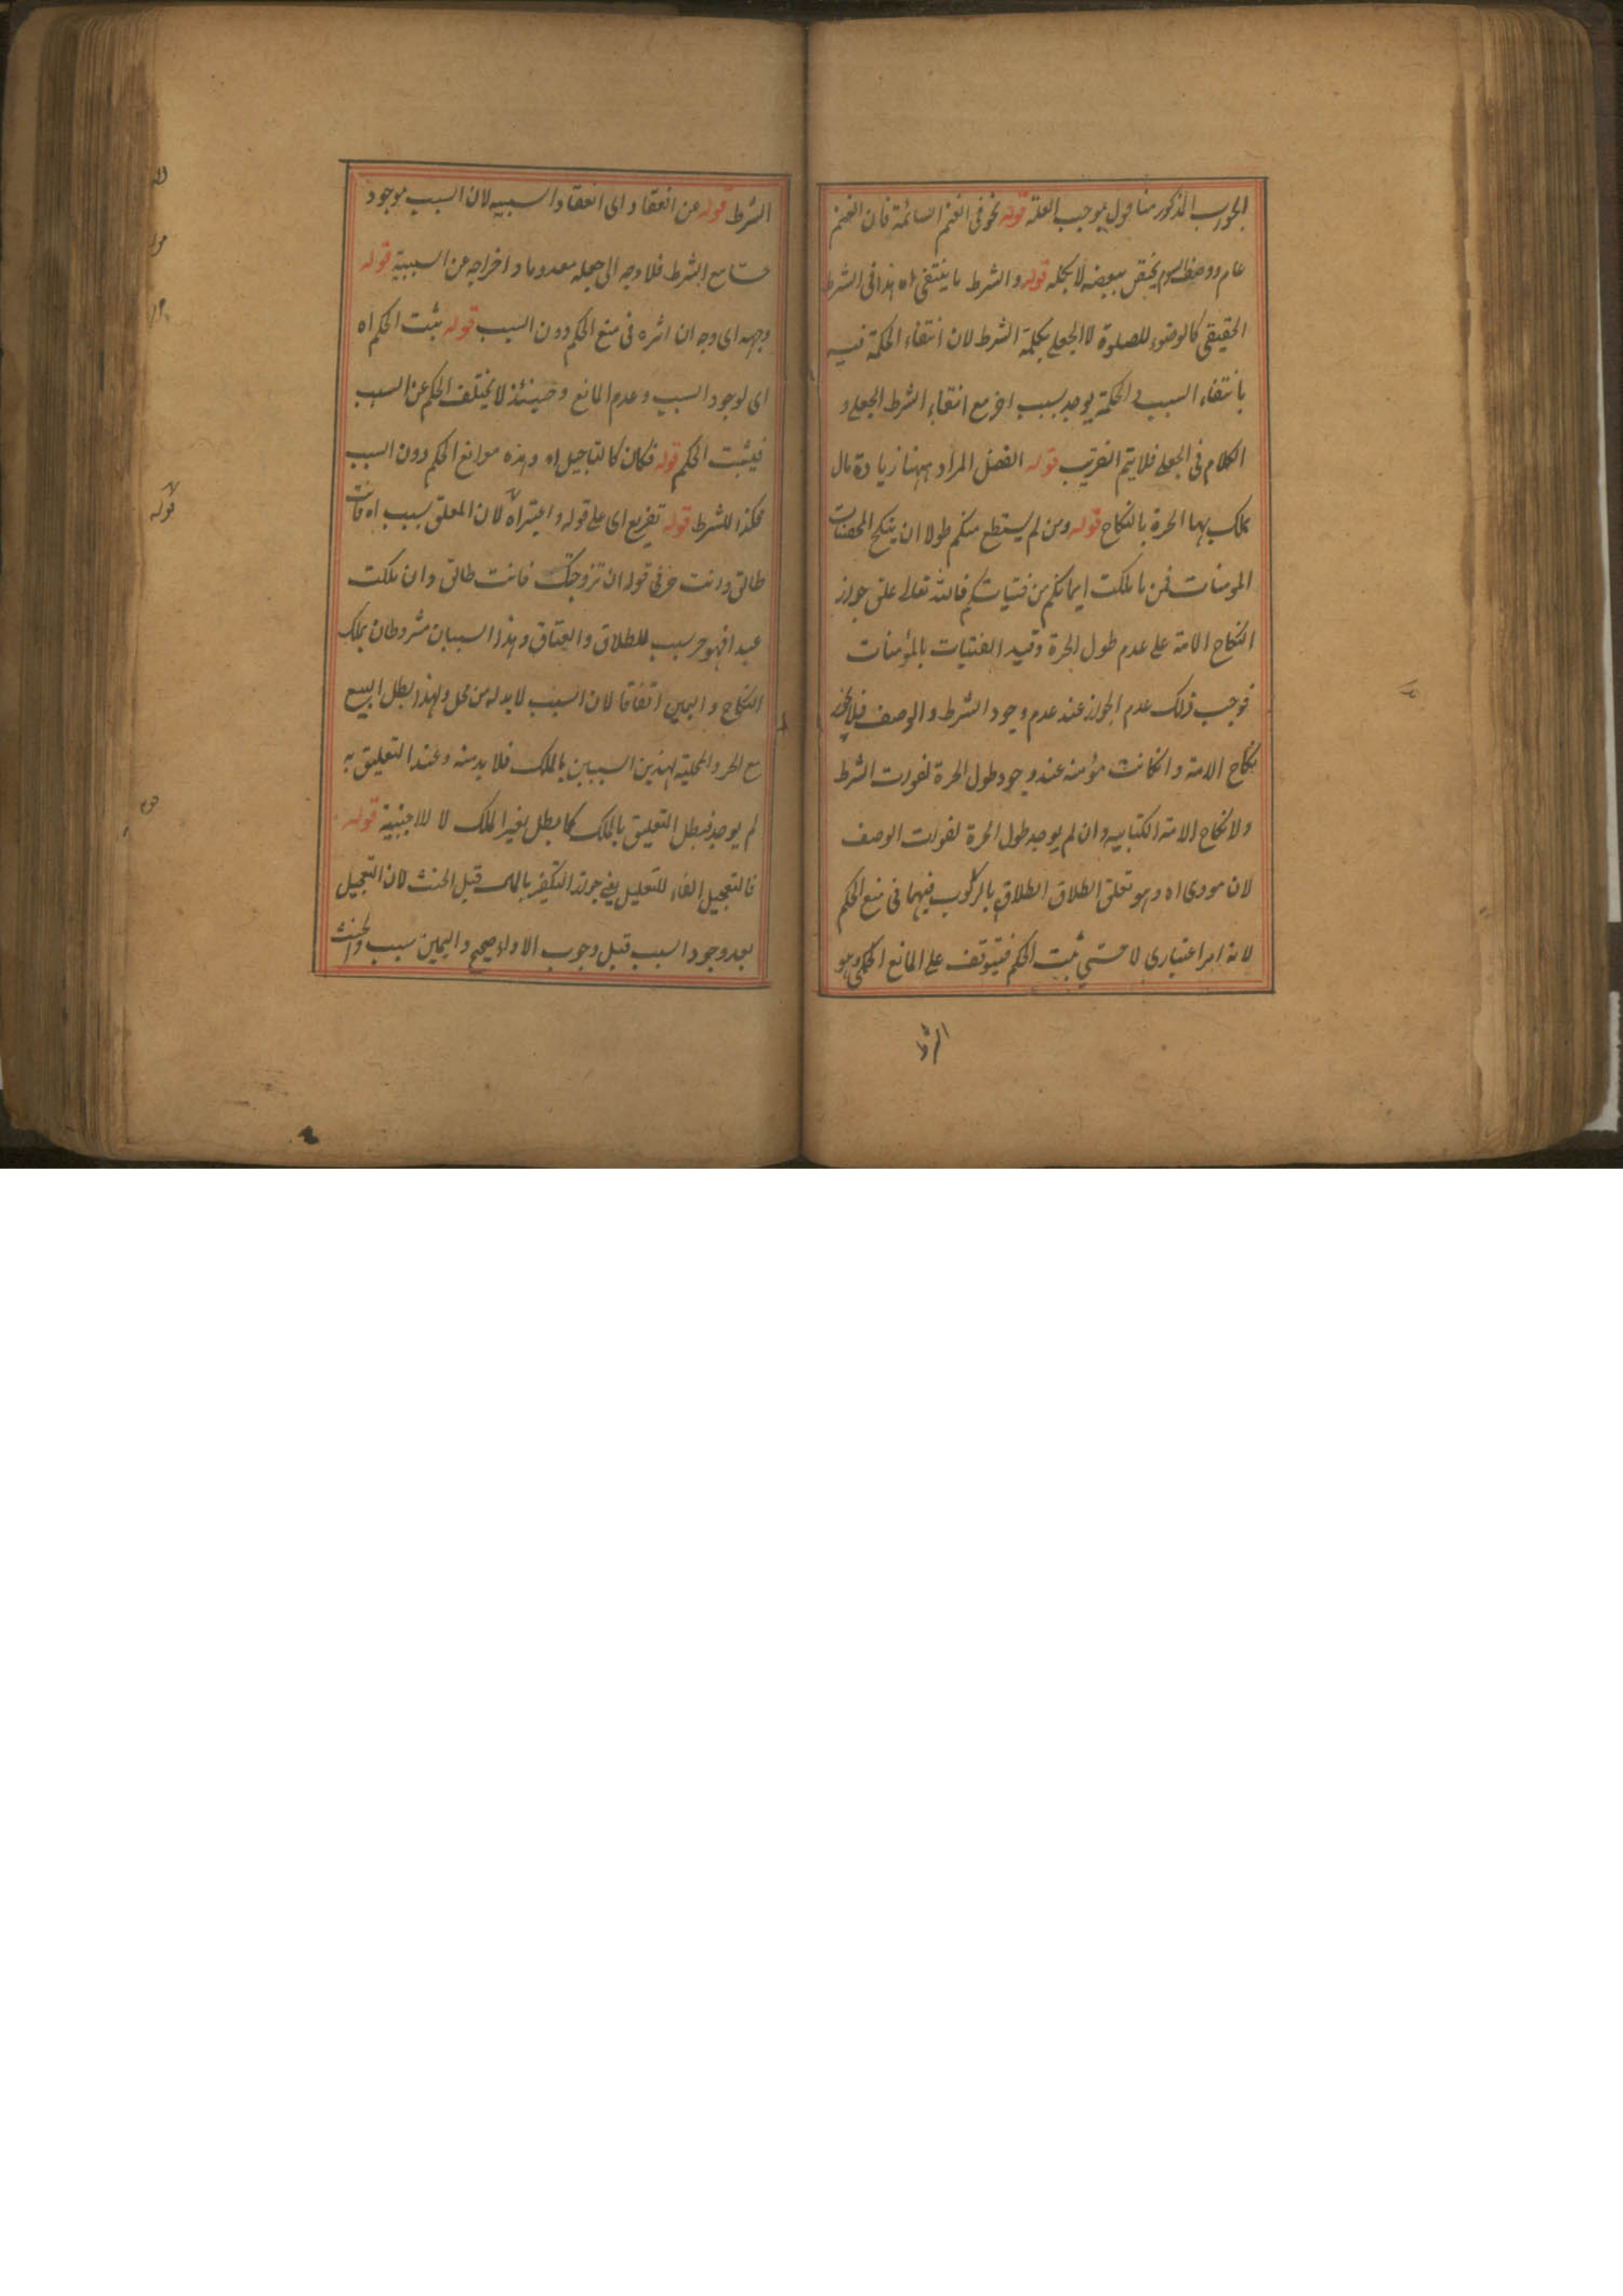 الجواب المذكور منا قول بموجب العلة قوله نحو فى الغنم السائمة فان الغنم
عام ووصف السوم يختص ببعضه لا بكله قوله والشرط ما ينتفى اه هذا فى الشرط
الحقيقى كالوضوء للصلوة لا الجعلى بكلمة الشرط لان انتفاء الحكمة فيه
بانتفاء السبب والحكمة يوجد بسبب اخر مع انتفاء الشرط الجعلى و
الكلام فى الجعلى فلا يتم التقريب قوله الفضل المراد ههنا زيادة مال
يملك بها الحرة بالنكاح قوله ومن لم يستطع منكم طولا ان ينكح المحصنات
المومنات فمن ما ملكت ايمانكم من فتياتكم فالله تعالى علق جواز
النكاح الامة على عدم طول الحرة وقيد الفتيات بالمؤمنات
فوجب ذلك عدم الجواز عند عدم وجود الشرط والوصف فلا يجوز
نكاح الامة وانكانت مؤمنه عند وجود طول الحرة لفوات الشرط
ولا نكاح الامة الكتابيه وان لم يوجد طول الحرة لفوات الوصف
لان مودى اه وهو تعلق الطلاق الطلاق بالركوب فيهما فى منع الحكم
لانه امر اعتبارى لا حسى ثبت الحكم فيتوقف على المانع الحكمى وهو
الشرط
الشرط قوله عن انعقاد اى انعقاد السببيه لان السبب موجود
حسّا مع الشرط فلا وجه الى جعله معدوما واخراجه عن السببية قوله
وجهه اى وجه ان اثره فى منع الحكم دون السبب قوله يثبت الحكم اه
اى لوجود السبب وعدم المانع وحينئذ لا يختلف الحكم عن السبب
فيثبت الحكم قوله فكان كالتاجيل اه وهذه موانع الحكم دون السبب
فكذا للشرط قوله تفريع اى على قوله واعتبراه لان المعلق سبب اه فانت
طالق وانت حر فى قوله ان تزوجتك فانت طالق وان ملكت
عبدا فهو حر سبب للطلاق والعتاق وهذا السببان مشروطان بملك
النكاح واليمين اتفاقا لان السبب لا بد له من محل ولهذا بطل البيع
مع الحر والمحلية لهذين السببين بالملك فلا بد منه وعند التعليق به
لم يوجد فبطل التعليق بالملك كما بطل بغير الملك لا للاجنبية قوله
فالتعجيل الفاء للتعليل يعنى جواز التكفير بالمال قبل الحنث لان التعجيل
بعد وجود السبب قبل وجوب الاداء صحيح واليمين سبب والحنث
قوله